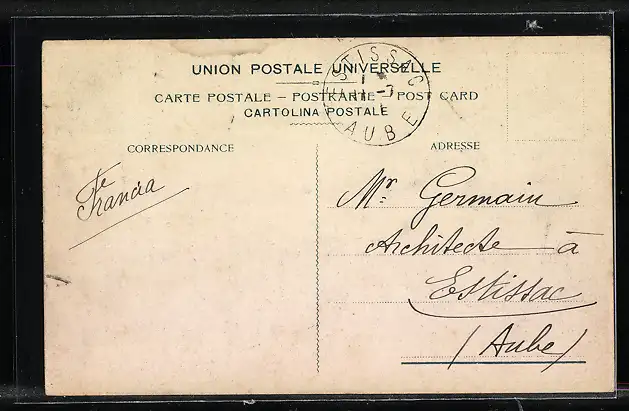 UNION POSTALE UNIVERSELLE
CARTE POSTALE – POSTKARTE – POST CARD
CARTOLINA POSTALE
ESTISSAC
AUBE
CORRESPONDANCE
ADRESSE
Mr Germain
Architecte à
Estissac
(Aube)